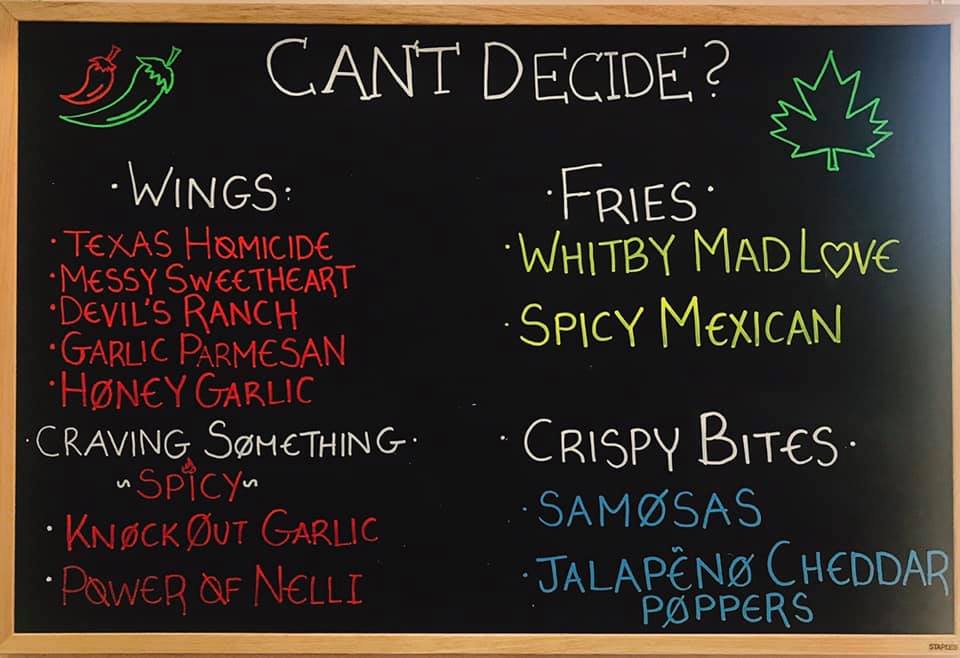 CAN'T DECIDE?
·WINGS:
·TEXAS HOMICIDE
·MESSY SWEETHEART
·DEVIL'S RANCH
·GARLIC PARMESAN
·HØNEY GARLIC
·CRAVING SØMETHING·
~SPICY~
·KNØCK ØUT GARLIC
·PØWER ØF NELLI
·FRIES·
·WHITBY MAD L♡VE
·SPICY MEXICAN
·CRISPY BITES·
·SAMØSAS
·JALAPÊ̈NØ CHEDDAR
PØPPERS
STAPLES